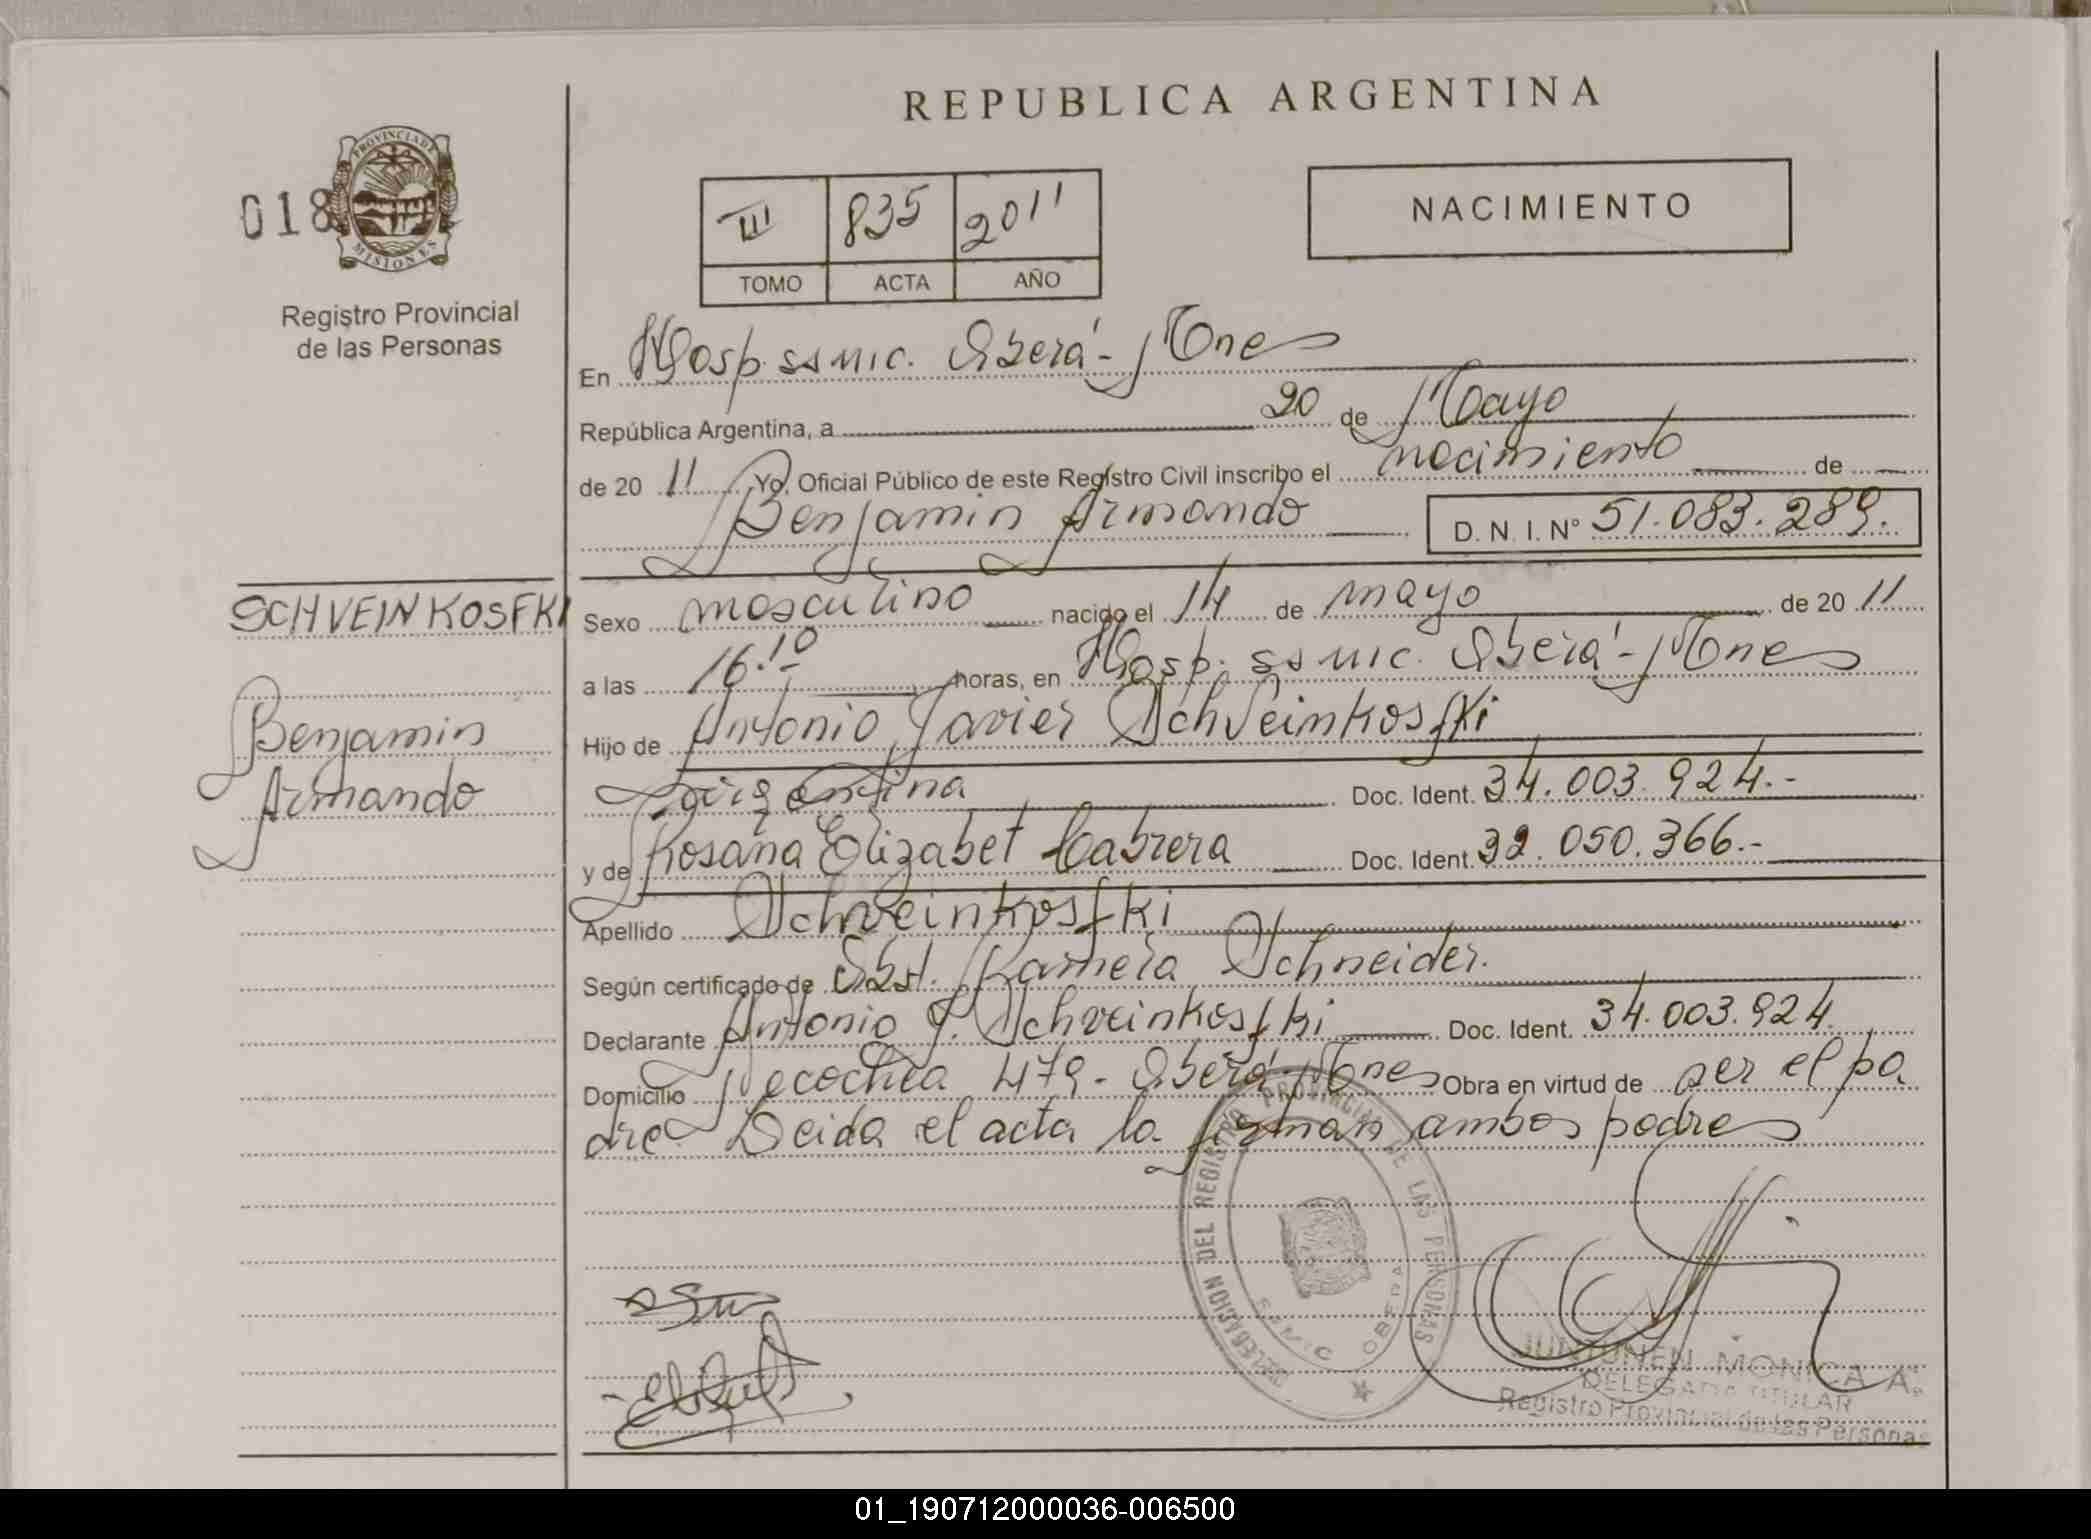 REPUBLICA ARGENTINA
018
PROVINCIA DE MISIONES
Registro Provincial
de las Personas
III 835 2011
TOMO ACTA AÑO
NACIMIENTO
En Hosp. SSMIC. Oberá - Mnes
República Argentina, a 20 de Mayo
de 20 11 Yo, Oficial Público de este Registro Civil inscribo el nacimiento de
Benjamin Armando D. N. I. Nº 51.083.289.
SCHVEINKOSFKI
Benjamin
Armando
Sexo masculino nacido el 14 de mayo de 20 11
a las 16.10 horas, en Hosp. SSMIC. Oberá - Mnes
Hijo de Antonio Javier Schveinkosfki
Argentina Doc. Ident. 34.003.924.-
y de Rosana Elizabet Cabrera Doc. Ident. 32.050.366.-
Apellido Schveinkosfki
Según certificado de Obst. Ramera Schneider.
Declarante Antonio J. Schveinkosfki Doc. Ident. 34.003.924
Domicilio Necochea 479 - Oberá - Mnes Obra en virtud de ser el pa
dre Leida el acta la firman ambos padres
DELEGACION DEL REGISTRO PROVINCIAL DE LAS PERSONAS
SAMIC OBERA
JUNTUNEN MONICA A.
DELEGADA TITULAR
Registro Provincial de las Personas
01_190712000036-006500